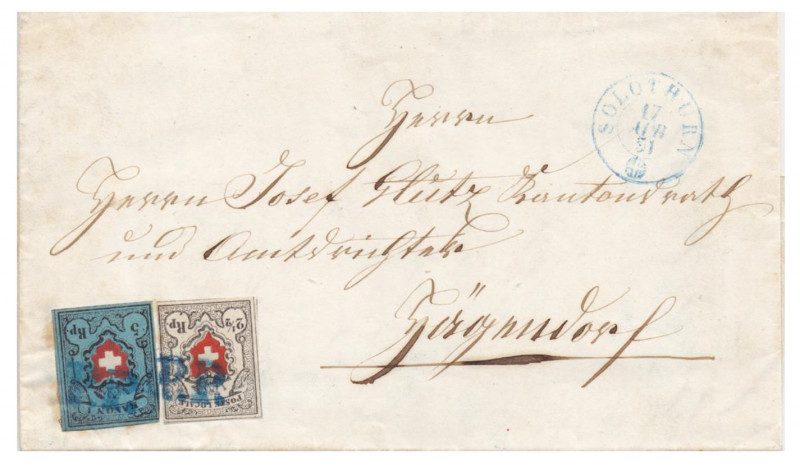 SOLOTHURN
17
APR
51
Herrn
Herrn Josef Glutz Kantonsrath
und Amtsrichter
Hägendorf
5 Rp
RAYON I
2½ Rp
POSTE LOCALE